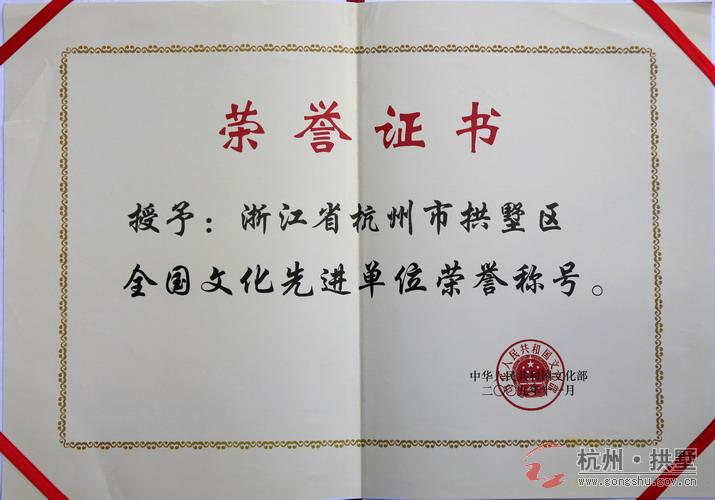 荣誉证书
授予：浙江省杭州市拱墅区
全国文化先进单位荣誉称号。
中华人民共和国文化部
中华人民共和国文化部
二〇〇九年十一月
杭州·拱墅
www.gongshu.gov.cn